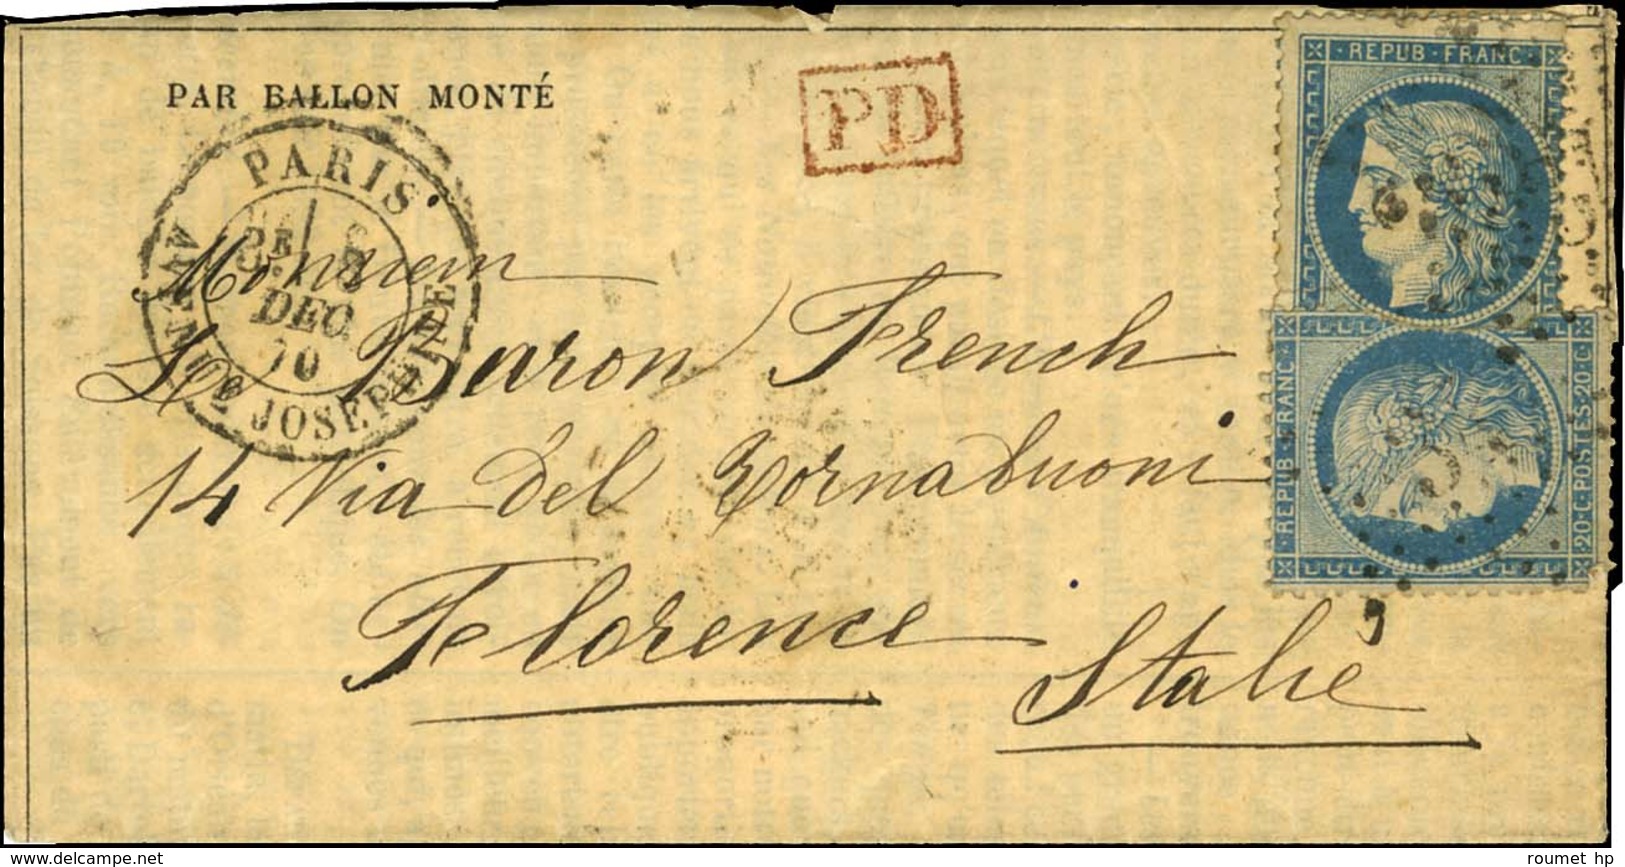 PAR BALLON MONTÉ
PD
PARIS
DEC.
70
JOSEPHINE
Monsieur
Le Baron French
14 Via del Tornabuoni
Florence
Italie
REPUB FRANC
REPUB FRANC
20 C POSTES 20 C
roumet hp